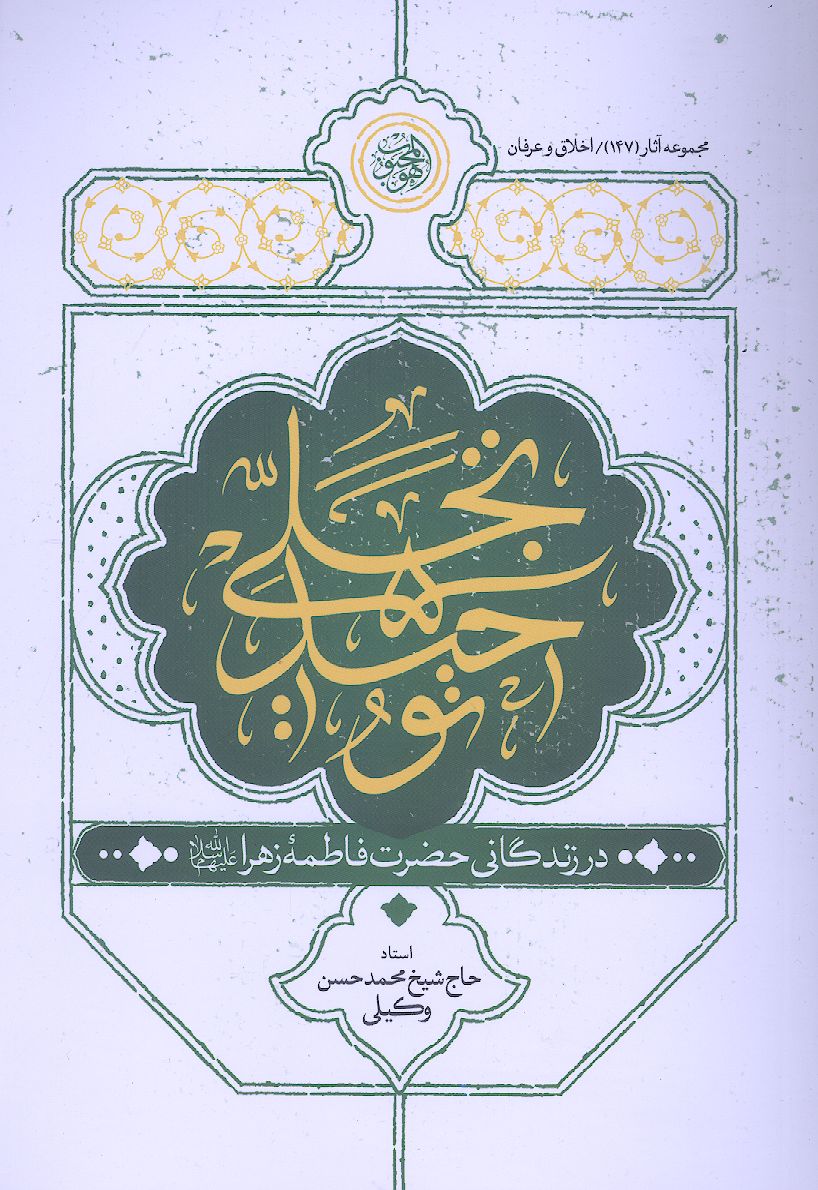 مجموعه آثار (۱۴۷)/ اخلاق و عرفان
هو المحبوب
تجلی
نور
در زندگانی حضرت فاطمهٔ زهرا سلام الله علیها
استاد
حاج شیخ محمد حسن
وکیلی